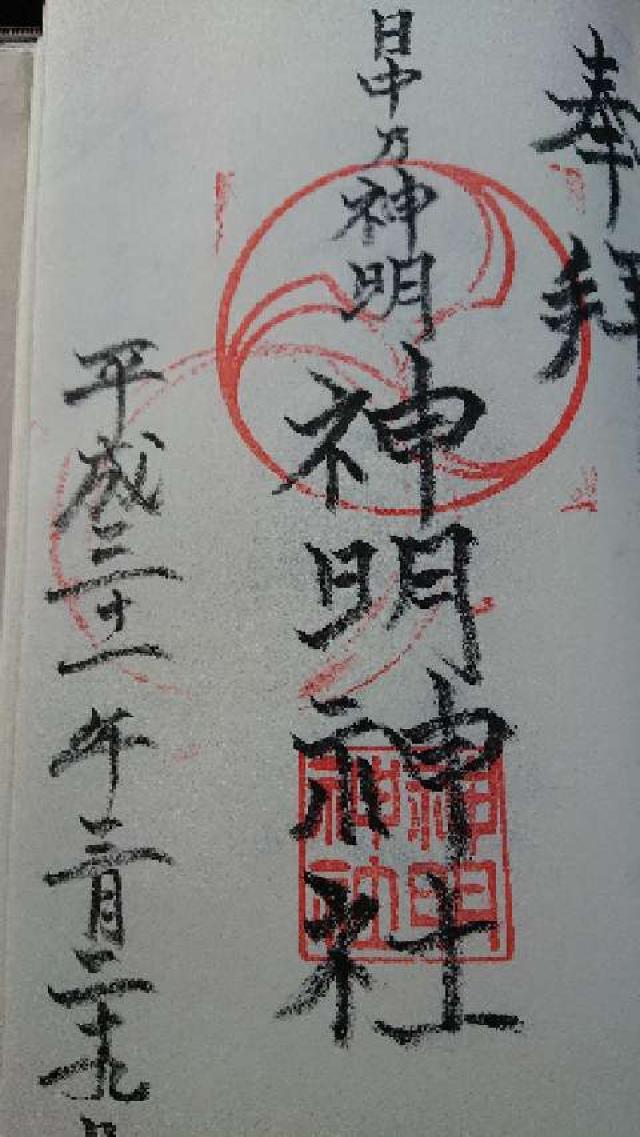 奉拝
日中乃神明
神明神社
神明
神社
平成三十一年三月二十九日